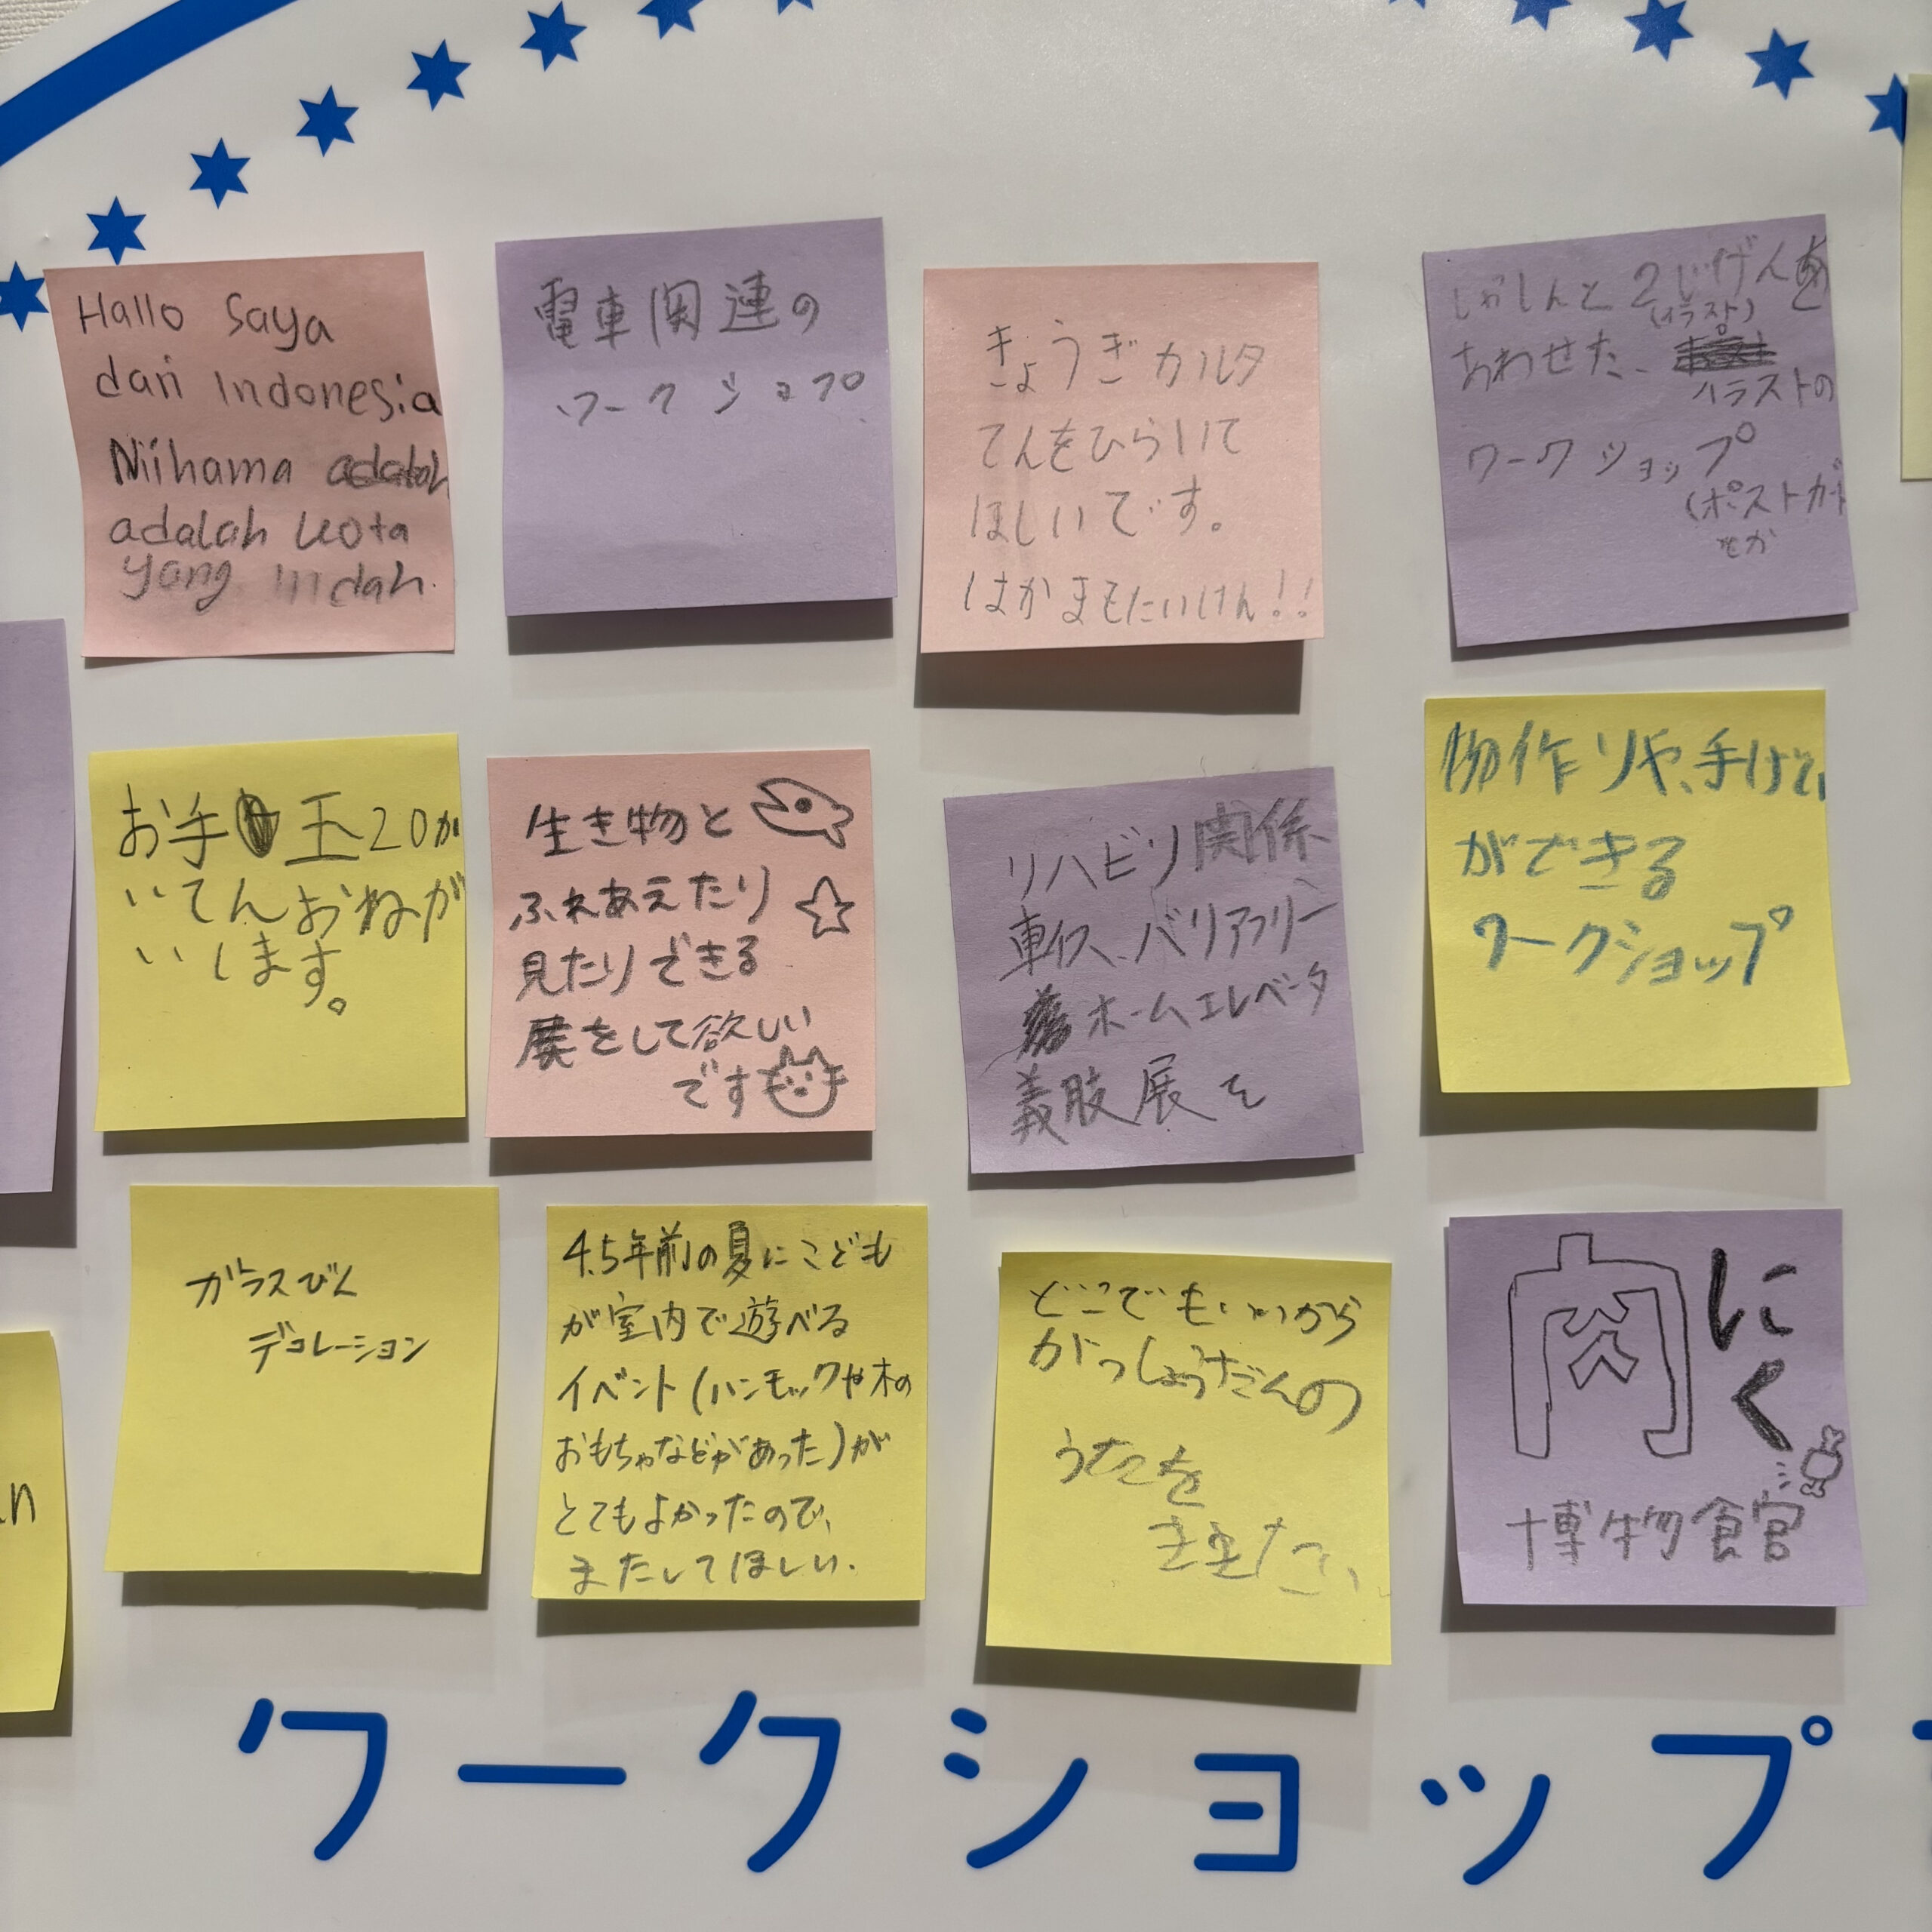 Hallo Saya
dari Indonesia
Niihama adalah
adalah kota
yang indah.
電車関連の
ワークショプ
きょうぎカルタ
てんをひらいて
ほしいです。
はかまもたいけん!!
しゃしんと2じげんを
(イラスト)
あわせた、
イラストの
ワークショップ
(ポストカード
とか
お手玉20か
いてんおねが
いします。
生き物と
ふれあえたり
見たりできる
展をして欲しい
です
リハビリ関係
車イス、バリアフリー
ホームエレベータ
義肢展を
物作りや、手げい
ができる
ワークショップ
ガラスびん
デコレーション
4.5年前の夏にこども
が室内で遊べる
イベント(ハンモックや木の
おもちゃなどがあった)が
とてもよかったので、
またしてほしい.
どこでもいいから
がっしょうだんの
うたを
ききたい
肉
にく
博物食官
n
ワークショップ